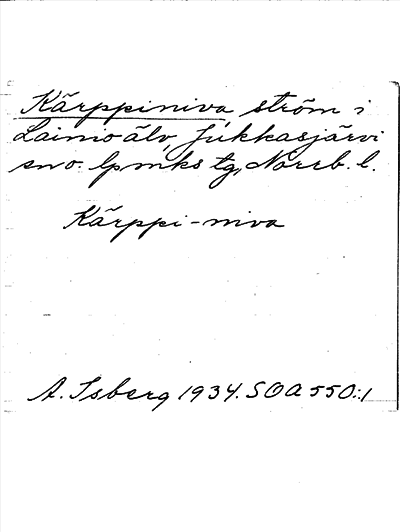 Kärppiniva, ström i
Lainio älv, Jukkasjärvi
sn o. lpmks tg, Norrb. l.
Kärppi-niva
A. Isberg 1934. SOA 550:1